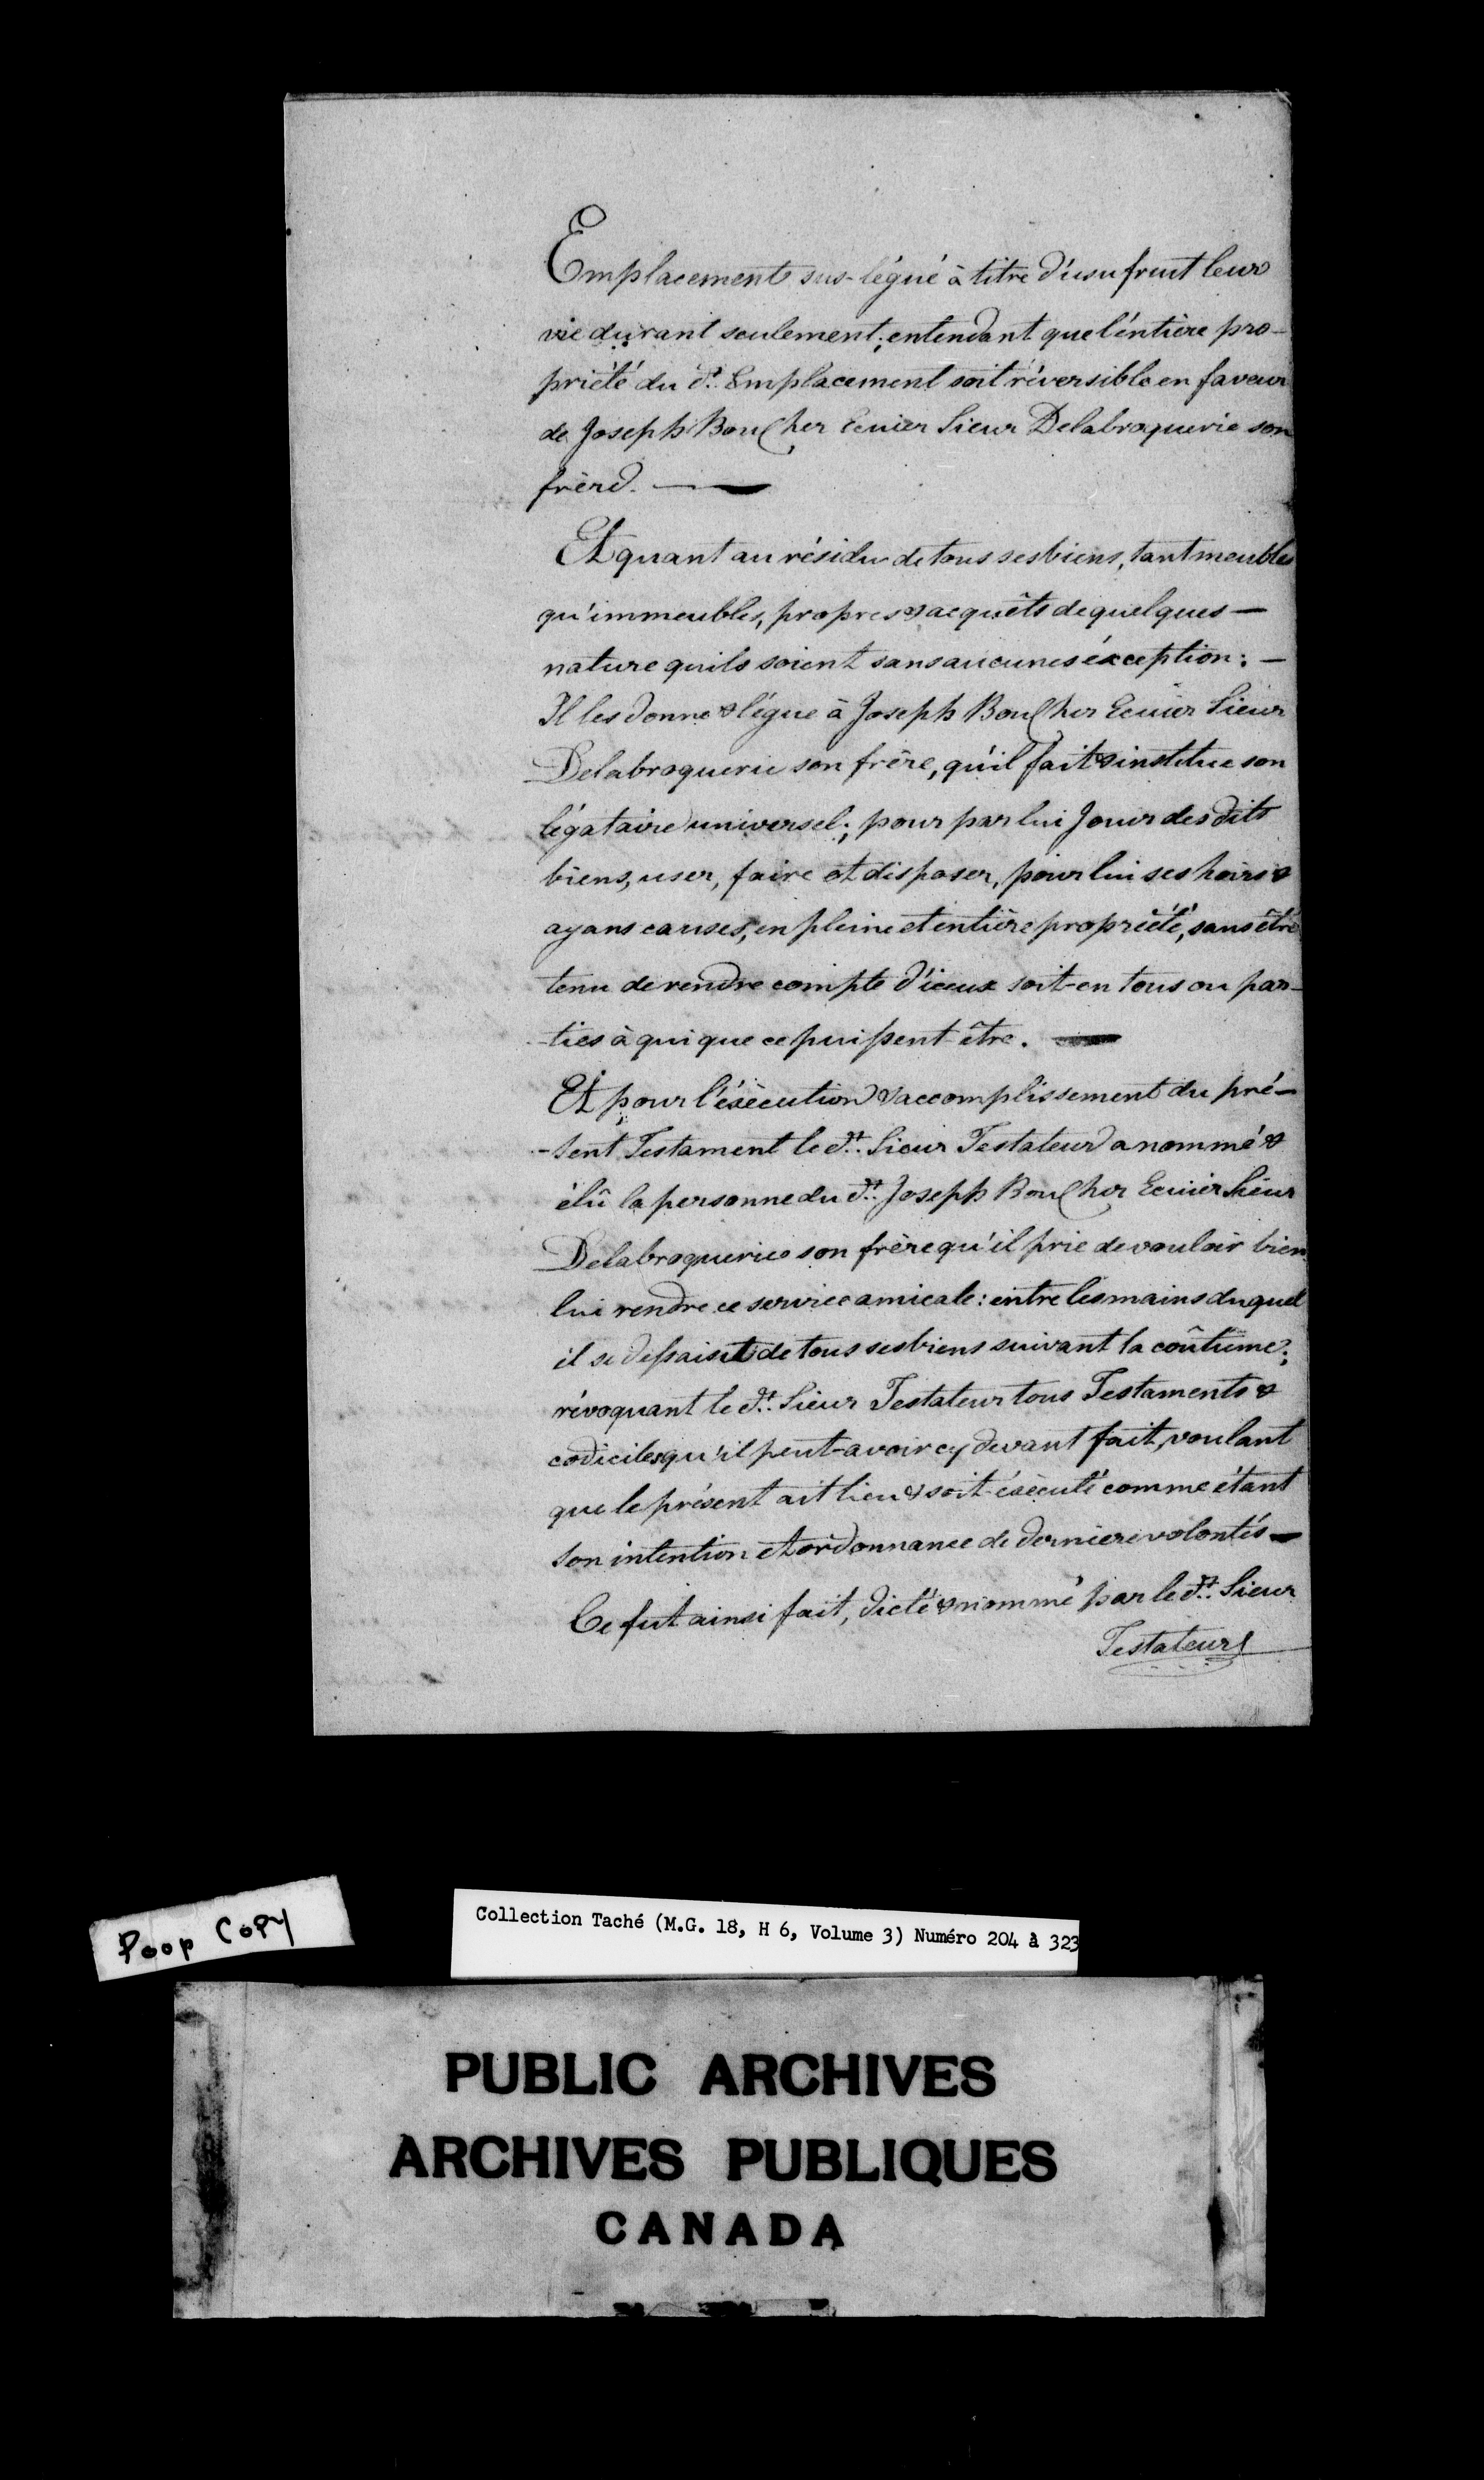 Emplacement sus-légué à titre d'usufruit leur
vie durant seulement; entendant que l'éntière pro-
priété du dt. Emplacement soit réversible en faveur
de Joseph Boucher Ecuier Sieur Delabroquerie son
frère.
Et quant au résidu de tous ses biens, tant meubles
qu'immeubles, propres & acquêts de quelques
nature quils soient sans aucunes éxception;
Il les donne & légue à Joseph Boucher Ecuier Sieur
Delabroquerie son frère, qu'il fait & institue son
légataire universel; pour par lui Jouir des dits
biens, user, faire et disposer, pour lui ses hoirs &
ayans causes, en pleine et entière propriété, sans être
tenu de rendre compte d'iceux soit-en tous ou par-
-ties à qui que ce puissent-être.
Et pour l'éxècution & accomplissement du pré-
-sent Testament le dt. Sieur Testateur a nommé &
élû la personne du dt. Joseph Boucher Ecuier Sieur
Delabroquerie son frère qu'il prie de vouloir bien
lui rendre ce service amicale: entre les mains duquel
il se dessaisit de tous ses biens suivant la coûtume;
révoquant le dt. Sieur Testateur tous Testaments &
codiciles qu'il peut-avoir cy devant fait, voulant
que le présent ait lieu & soit éxècuté comme étant
son intention et ordonnance de derniere volontés
Ce fut ainsi fait, dicté & nommé par le dt. Sieur
Testateur
Poop Copy
Collection Taché (M.G. 18, H 6, Volume 3) Numéro 204 à 323
PUBLIC ARCHIVES
ARCHIVES PUBLIQUES
CANADA